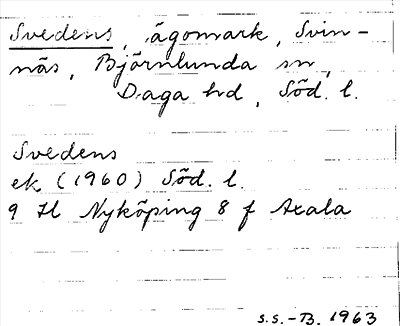 Svedens, ägomark, Svin-
näs, Björnlunda sn,
Daga hd, Söd. l.
Svedens
ek (1960) Söd. l.
9 H Nyköping 8 f Axala
S.S.-B. 1963